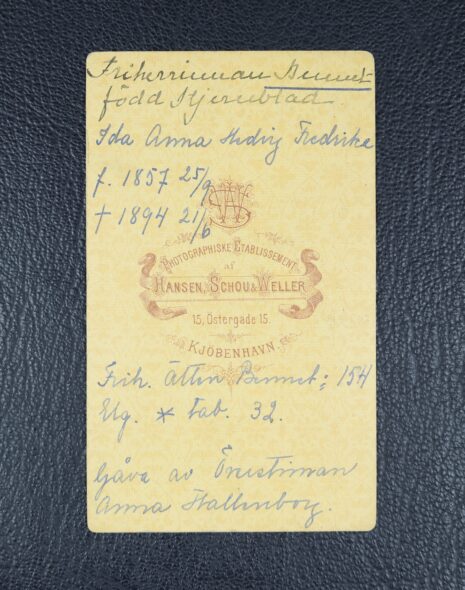 Friherrinnan Bennet
född Stjernblad
Ida Anna Hedvig Fredrika
f. 1857 25/9
† 1894 21/6
PHOTOGRAPHISKE ETABLISSEMENT
af
HANSEN, SCHOU & WELLER
15, Ostergade 15.
KJÖBENHAVN.
Frih. ätten Bennet: 154
Elg. * tab. 32.
Gåva av
Anna Hallenborg.